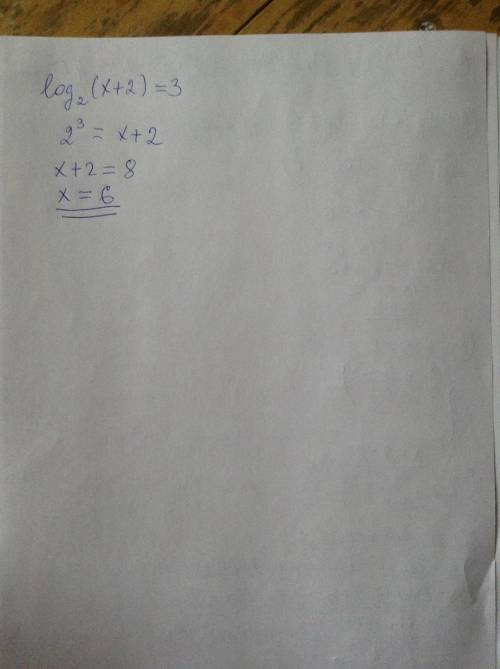 log₂(x+2)=3
2³ = x+2
x+2=8
x=6